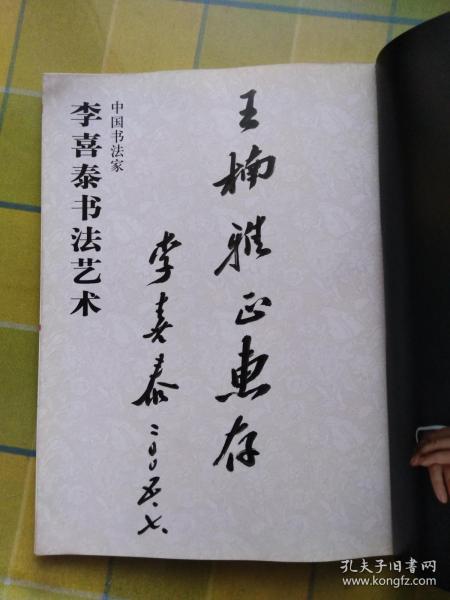 王楠雅正惠存
李喜泰
二〇〇五.七.
中国书法家
李喜泰书法艺术
孔夫子旧书网
www.kongfz.com